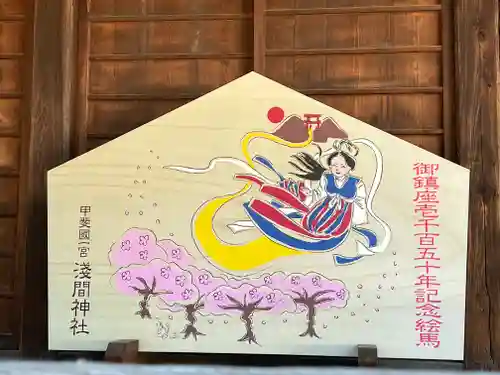 御鎮座壱千百五十年記念絵馬
甲斐國一宮 淺間神社